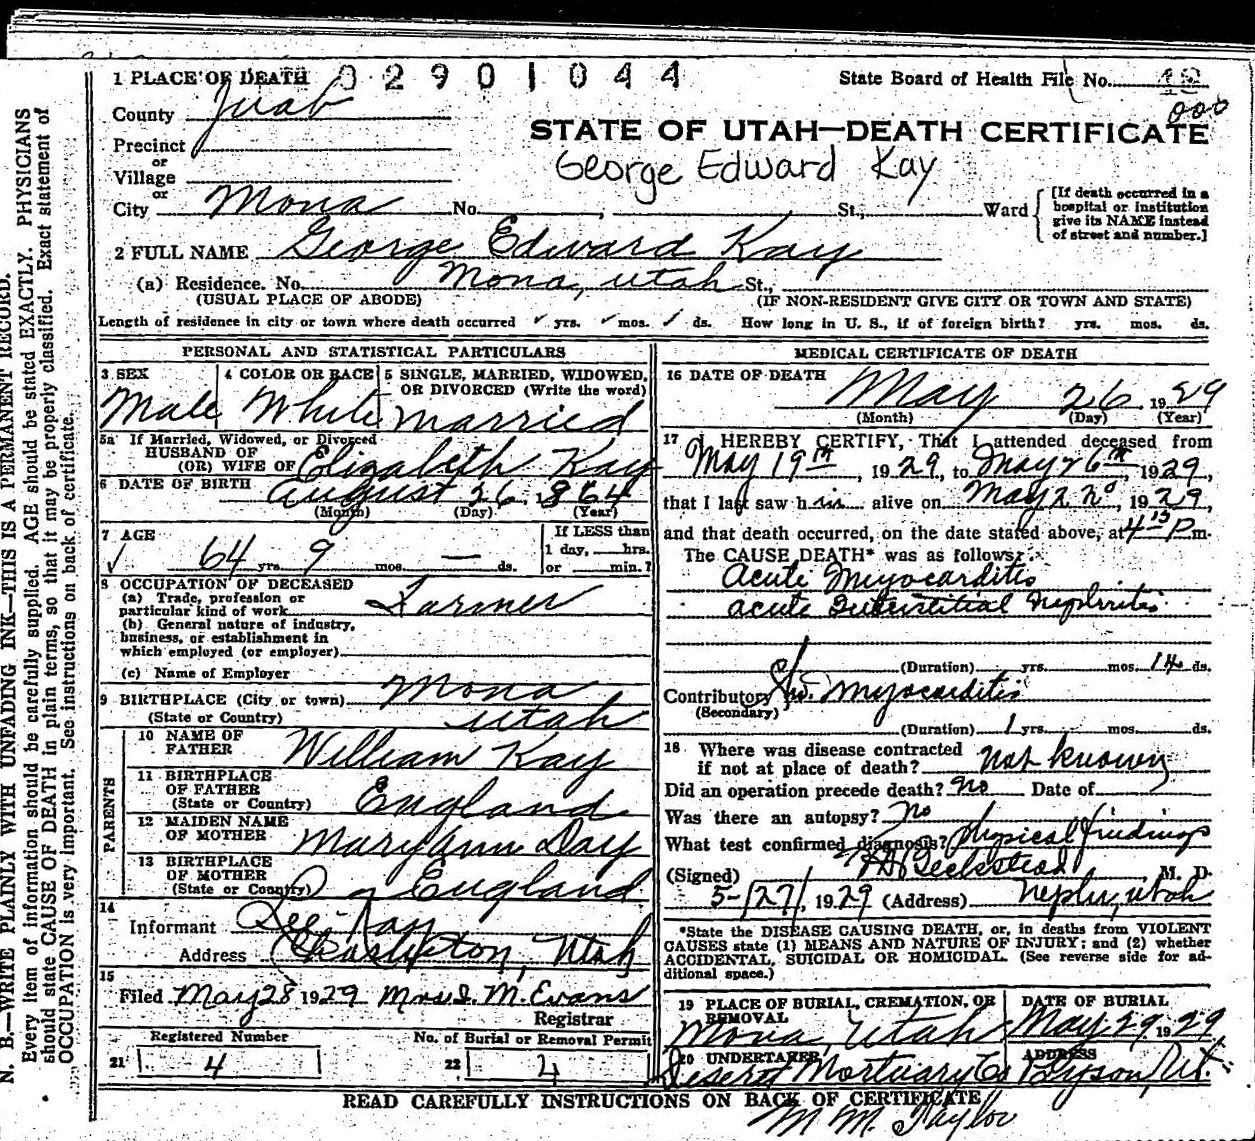 1 PLACE OF DEATH 02901044 State Board of Health File No. 
County Juab 000
STATE OF UTAH—DEATH CERTIFICATE
Precinct
or
Village
George Edward Kay
or
City Mona No. , St., Ward [If death occurred in a hospital or institution give its NAME instead of street and number.]
2 FULL NAME George Edward Kay
(a) Residence. No. Mona, Utah St.,
(USUAL PLACE OF ABODE) (IF NON-RESIDENT GIVE CITY OR TOWN AND STATE)
Length of residence in city or town where death occurred ✓ yrs. ✓ mos. ✓ ds. How long in U. S., if of foreign birth? yrs. mos. ds.
PERSONAL AND STATISTICAL PARTICULARS
3 SEX 4 COLOR OR RACE 5 SINGLE, MARRIED, WIDOWED,
OR DIVORCED (Write the word)
Male White Married
5a If Married, Widowed, or Divorced
HUSBAND OF
(OR) WIFE OF Elizabeth Kay
6 DATE OF BIRTH August 26 1864
(Month) (Day) (Year)
7 AGE If LESS than
✓ 64 yrs. 9 mos. — ds. 1 day, hrs.
or min.?
8 OCCUPATION OF DECEASED
(a) Trade, profession or
particular kind of work Farmer
(b) General nature of industry,
business, or establishment in
which employed (or employer)
(c) Name of Employer
9 BIRTHPLACE (City or town) Mona
(State or Country) Utah
PARENTS
10 NAME OF
FATHER William Kay
11 BIRTHPLACE
OF FATHER
(State or Country) England
12 MAIDEN NAME
OF MOTHER Mary Ann Day
13 BIRTHPLACE
OF MOTHER
(State or Country) England
14
Informant Kay
Address Charleston, Utah
15
Filed May 28 1929 Mrs. I. M. Evans
Registrar
Registered Number No. of Burial or Removal Permit
21 4 22 4
MEDICAL CERTIFICATE OF DEATH
16 DATE OF DEATH
May 26 1929
(Month) (Day) (Year)
17 I HEREBY CERTIFY, That I attended deceased from
May 19th, 1929, to May 26th, 1929,
that I last saw him alive on May 22d, 1929,
and that death occurred, on the date stated above, at 4 15 P m.
The CAUSE DEATH* was as follows:
Acute Myocarditis
acute Interstitial Nephritis
(Duration) yrs. mos. 14 ds.
Contributory Myocarditis
(Secondary)
(Duration) 1 yrs. mos. ds.
18 Where was disease contracted
if not at place of death? not known
Did an operation precede death? no Date of
Was there an autopsy? no
What test confirmed diagnosis? physical findings
(Signed) M. D.
5-/27/, 1929 (Address) Nephi, Utah
*State the DISEASE CAUSING DEATH, or, in deaths from VIOLENT
CAUSES state (1) MEANS AND NATURE OF INJURY; and (2) whether
ACCIDENTAL, SUICIDAL OR HOMICIDAL. (See reverse side for ad-
ditional space.)
19 PLACE OF BURIAL, CREMATION, OR DATE OF BURIAL
REMOVAL
Mona, Utah May 29 1929
20 UNDERTAKER ADDRESS
Deseret Mortuary Co Payson, Ut.
READ CAREFULLY INSTRUCTIONS ON BACK OF CERTIFICATE
M. M. Taylor
N. B.—WRITE PLAINLY WITH UNFADING INK—THIS IS A PERMANENT RECORD.
Every item of information should be carefully supplied. AGE should be stated EXACTLY. PHYSICIANS
should state CAUSE OF DEATH in plain terms, so that it may be properly classified. Exact statement of
OCCUPATION is very important. See instructions on back of certificate.